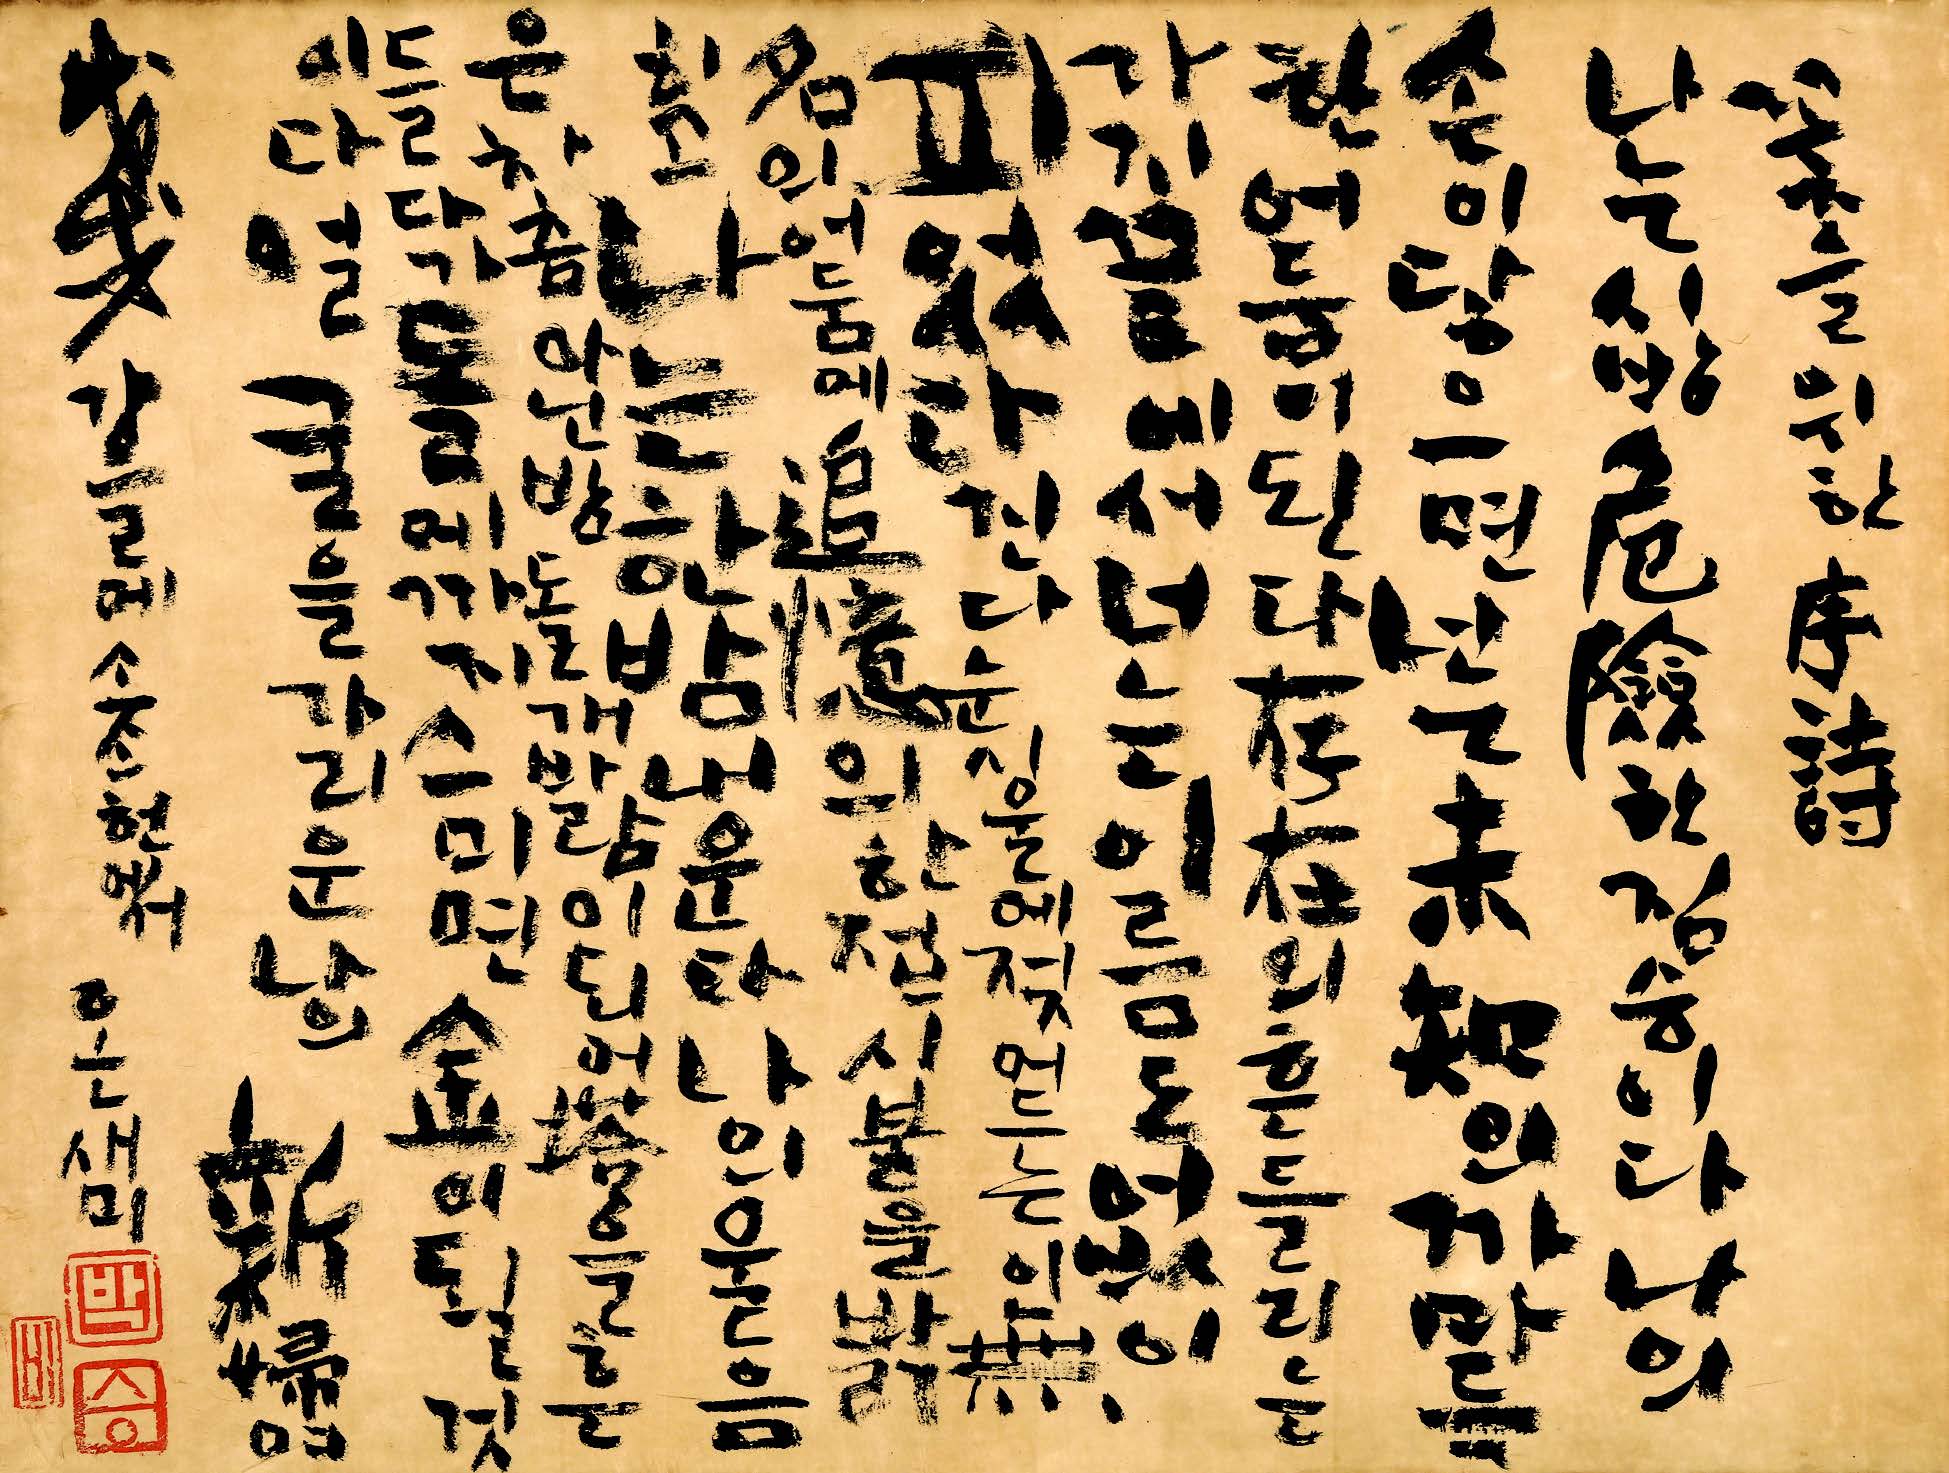 꽃을위한序詩
나는시방危險한짐승이다나의
손이닿으면너는未知의까마득
한어둠이된다存在의흔들리는
가지끝에서너는이름도없이
피었다진다눈시울에젖어드는이無
名의어둠에追憶의한접시불을밝
히고나는한밤내운다나의울음
은차츰아닌밤돌개바람이되어塔을흔
들다가돌에까지스미면金이될것
이다얼굴을가리운나의新婦여
온새미
박
승